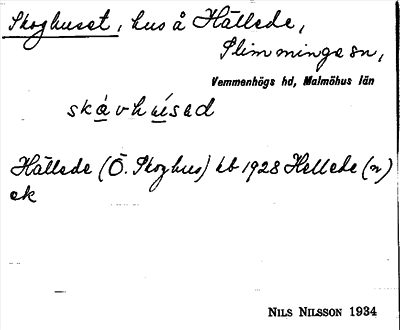 Skoghuset, hus å Hällede,
Slimminge sn,
Vemmenhögs hd, Malmöhus län
skávhúsəd
Hällede (Ö. Skoghus) kb 1928 Hellede (n)
ek
NILS NILSSON 1934